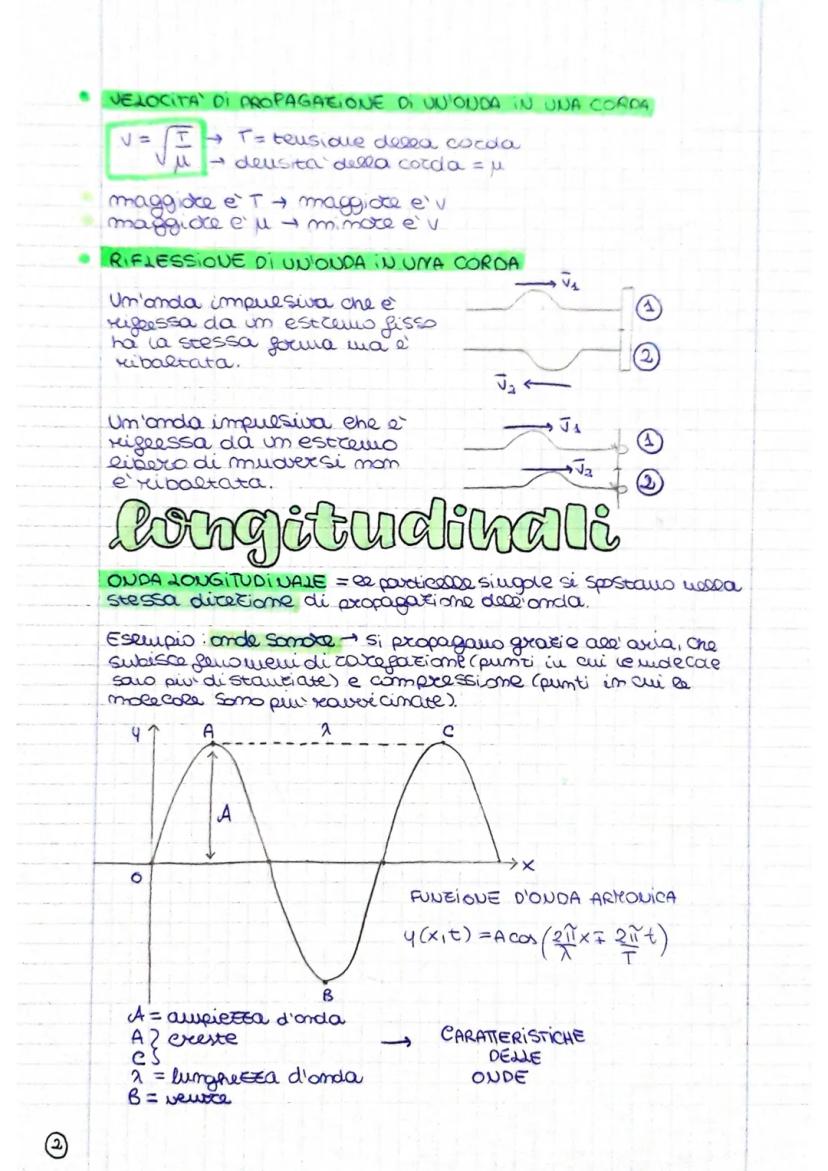 VELOCITA' Di PROPAGAZIONE Di UN'ONDA iN UNA CORDA
V = √(T/μ) → T = tensione della corda
→ densità della corda = μ
maggiore è T → maggiore è v
maggiore è μ → minore è v
RiFLESSIONE Di UN'ONDA iN UNA CORDA
Un'onda impulsiva che è
riflessa da un estremo fisso
ha la stessa forma ma è
ribaltata.
V₁
1
2
V₂
Un'onda impulsiva che è
riflessa da un estremo
libero di muoversi non
è ribaltata.
V₁
1
V₂
2
longitudinali
ONDA LONGiTUDiNALE = le particelle singole si spostano nella
stessa direzione di propagazione dell'onda.
Esempio: onde sonore → si propagano grazie all'aria, che
subisce fenomeni di rarefazione (punti in cui le molecole
sono più distanziate) e compressione (punti in cui le
molecole sono più ravvicinate).
y A λ C
A
O x
FUNZIONE D'ONDA ARMONICA
y(x,t) = A cos (2π/λ x ∓ 2π/T t)
B
A = ampiezza d'onda
A } creste
C }
→ CARATTERISTICHE
DELLE
ONDE
λ = lunghezza d'onda
B = ventre
2